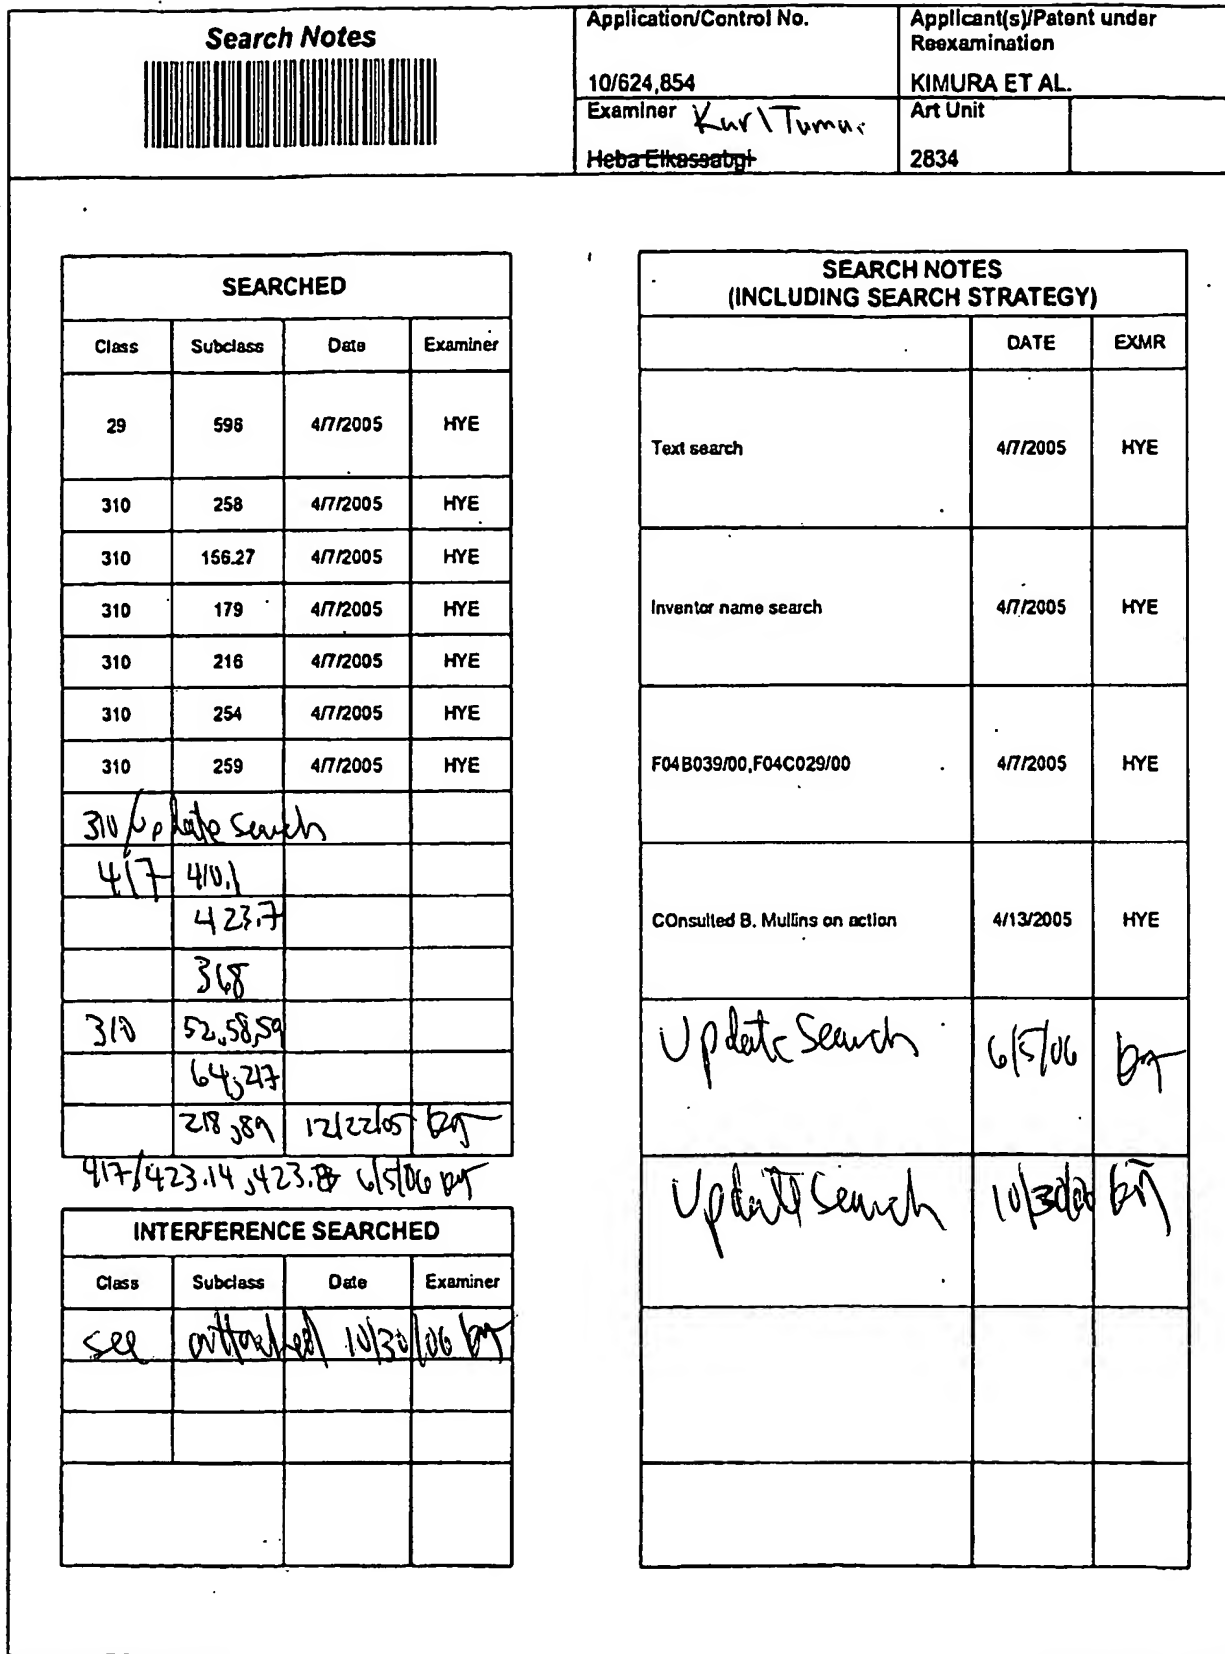 Search Notes
Application/Control No.
10/624,854
Applicant(s)/Patent under
Reexamination
KIMURA ET AL.
Examiner
Heba Elkassabgi
Art Unit
2834
SEARCHED
Class Subclass Date Examiner
29 596 4/7/2005 HYE
310 258 4/7/2005 HYE
310 156.27 4/7/2005 HYE
310 179 4/7/2005 HYE
310 216 4/7/2005 HYE
310 254 4/7/2005 HYE
310 259 4/7/2005 HYE
310/Update Search
417 410.1
423.7
368
310 52,58,59
64,217
218,89 12/22/05
417/423.14, 6/5/06
INTERFERENCE SEARCHED
Class Subclass Date Examiner
see attached 10/30/06
SEARCH NOTES
(INCLUDING SEARCH STRATEGY)
DATE EXMR
Text search 4/7/2005 HYE
Inventor name search 4/7/2005 HYE
F04B039/00,F04C029/00 4/7/2005 HYE
COnsulted B. Mullins on action 4/13/2005 HYE
Update Search 6/5/06
Update Search 10/30/06